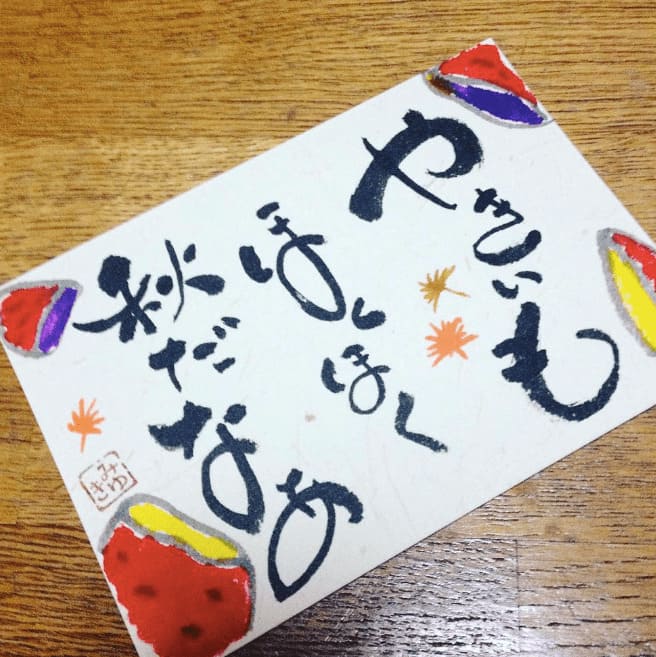 やきいも
ほくほく
秋だなあ
みゆき